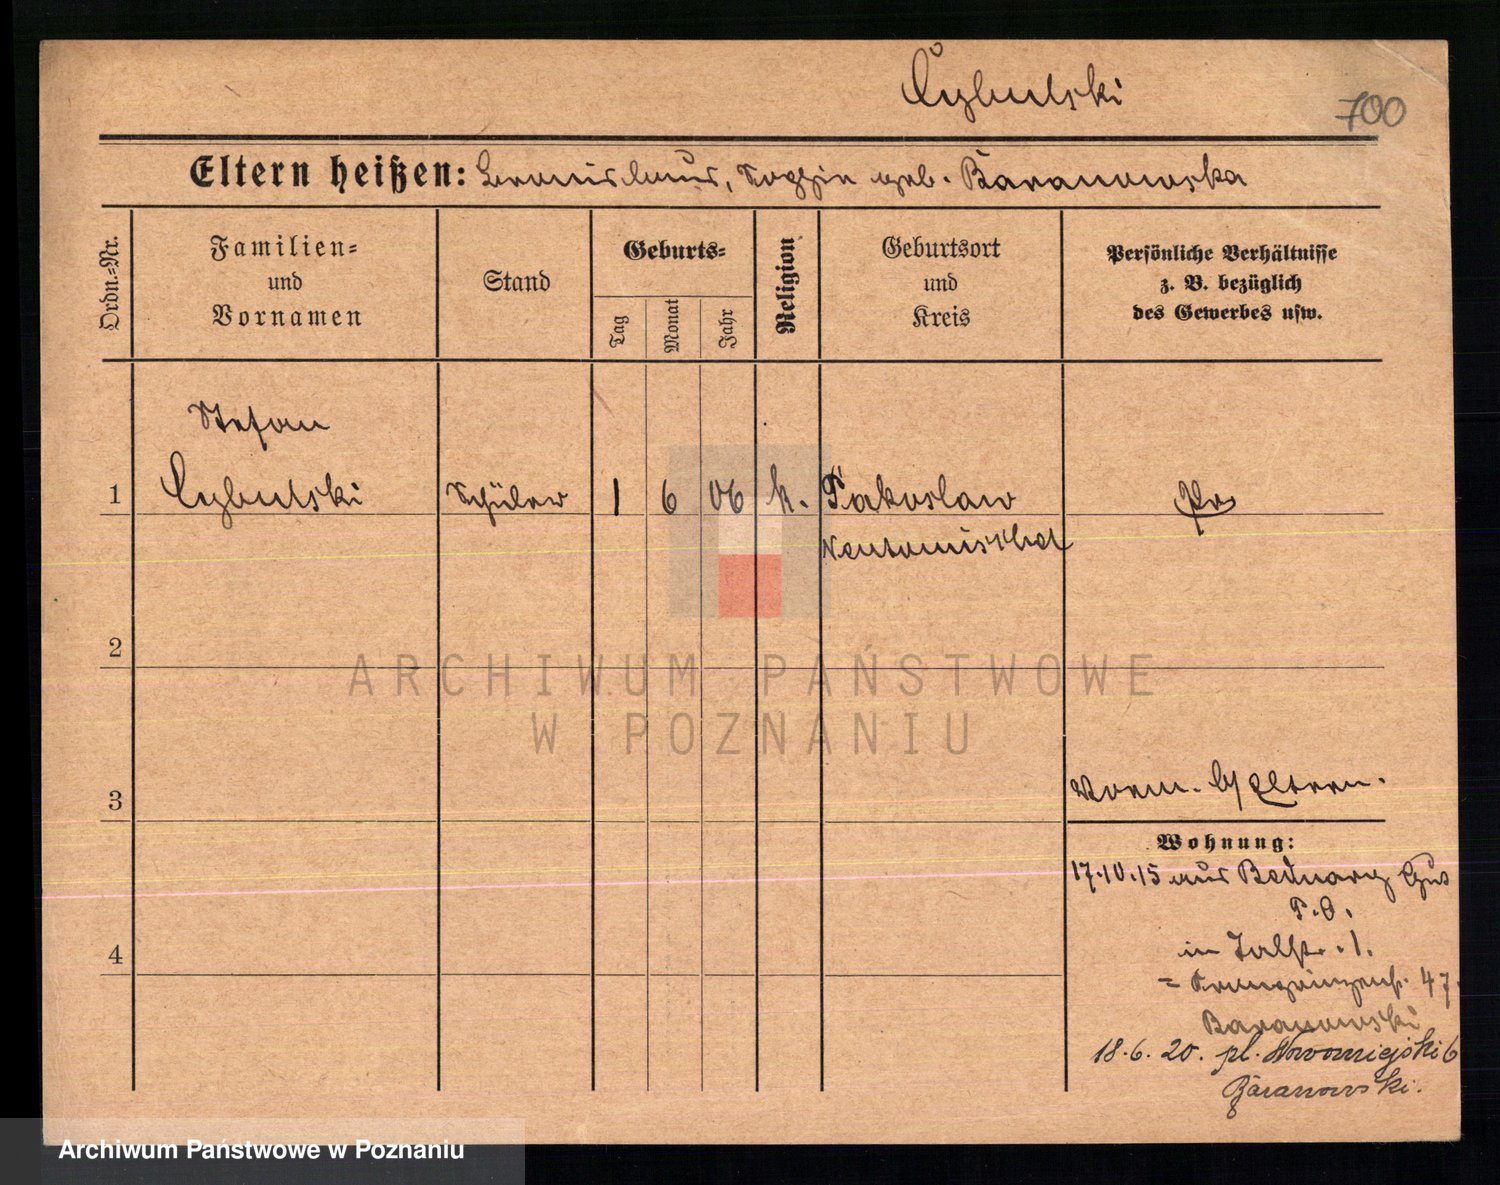 Cybulski
700
Eltern heißen: Bronislaus, Sophie geb. Baranowska
Ordn.=Nr.
Familien=
und
Vornamen
Stand
Geburts=
Tag
Monat
Jahr
Religion
Geburtsort
und
Kreis
Persönliche Verhältnisse
z. B. bezüglich
des Gewerbes usw.
Stefan
1 Cybulski Schüler 1 6 06 k. Pakoslaw Pr
Neutomischel
2
ARCHIWUM PAŃSTWOWE
W POZNANIU
3
Eltern.
Wohnung:
17.10.15 aus Bednary Gut
P.O.
4
in Talstr. 1.
= Kronprinzenstr. 47.
Baranowski
18.6.20. pl. Nowomiejski 6
Baranowski.
Archiwum Państwowe w Poznaniu